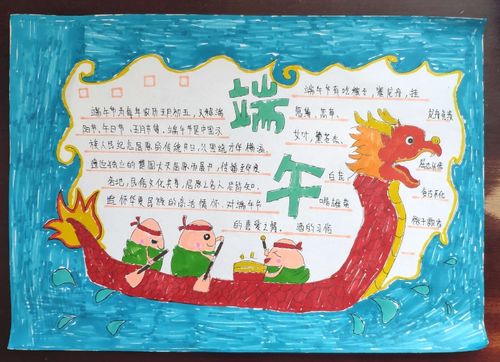 端午
端午节为每年农历五月初五,又称端
阳节,午日节,五月节等,端午节是中国汉
族人民纪念屈原的传统节日,以围绕才华横溢、
遗世独立的楚国大夫屈原而展开,传播至华夏
各地,民俗文化共享,屈原之名人尽皆知,
追怀华夏民族的高洁情怀。对端午节
的喜爱之情。
端午节有吃粽子,赛龙舟,挂
菖蒲、蒿草、
艾叶,薰苍术、
白芷,
喝雄黄
酒的习俗
龙舟竞渡
粽子飘香